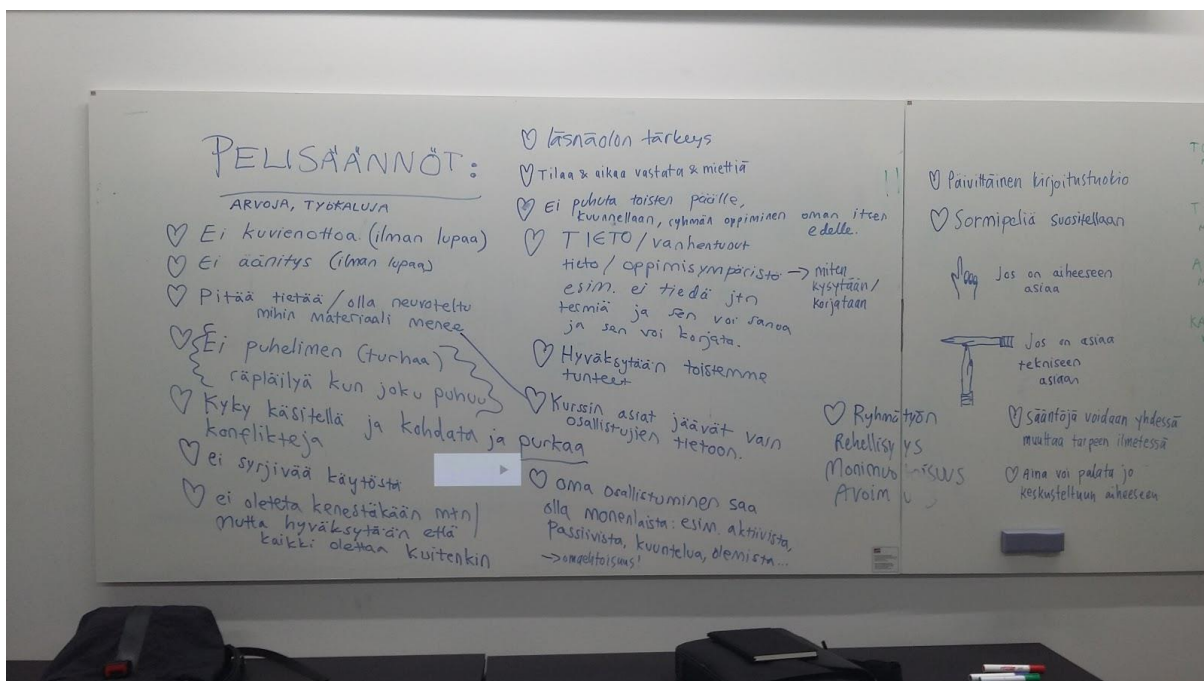 PELISÄÄNNÖT:
ARVOJA, TYÖKALUJA
♡ Ei kuvienottoa (ilman lupaa)
♡ Ei äänitys (ilman lupaa)
♡ Pitää tietää / olla neuvoteltu
mihin materiaali menee
♡ Ei puhelimen (turhaa)
räpläilyä kun joku puhuu
♡ Kyky käsitellä ja kohdata ja purkaa
konflikteja
♡ ei syrjivää käytöstä
♡ ei oleteta kenestäkään mtn/
mutta hyväksytään että
kaikki olettaa kuitenkin
♡ läsnäolon tärkeys
♡ Tilaa & aikaa vastata & miettiä
♡ Ei puhuta toisten päälle,
kuunnellaan, ryhmän oppiminen oman itsen
edelle.
♡ TIETO / vanhentuout
tieto / oppimisympäristö → miten
kysytään/
korjataan
esim. ei tiedä jtn
termiä ja sen voi sanoa
ja sen voi korjata.
♡ Hyväksytään toistemme
tunteet
♡ Kurssin asiat jäävät vain
osallistujien tietoon.
♡ oma osallistuminen saa
olla monenlaista: esim. aktiivista,
passiivista, kuuntelua, olemista...
→ omaehtoisuus!
!!
♡ Ryhmätyön
Rehellisyys
Monimuo isuus
Avoim
♡ Päivittäinen kirjoitustuokio
♡ Sormipeliä suositellaan
Jos on aiheeseen
asiaa
Jos on asiaa
tekniseen
asiaan
♡ Sääntöjä voidaan yhdessä
muuttaa tarpeen ilmetessä
♡ Aina voi palata jo
keskusteltuun aiheeseen